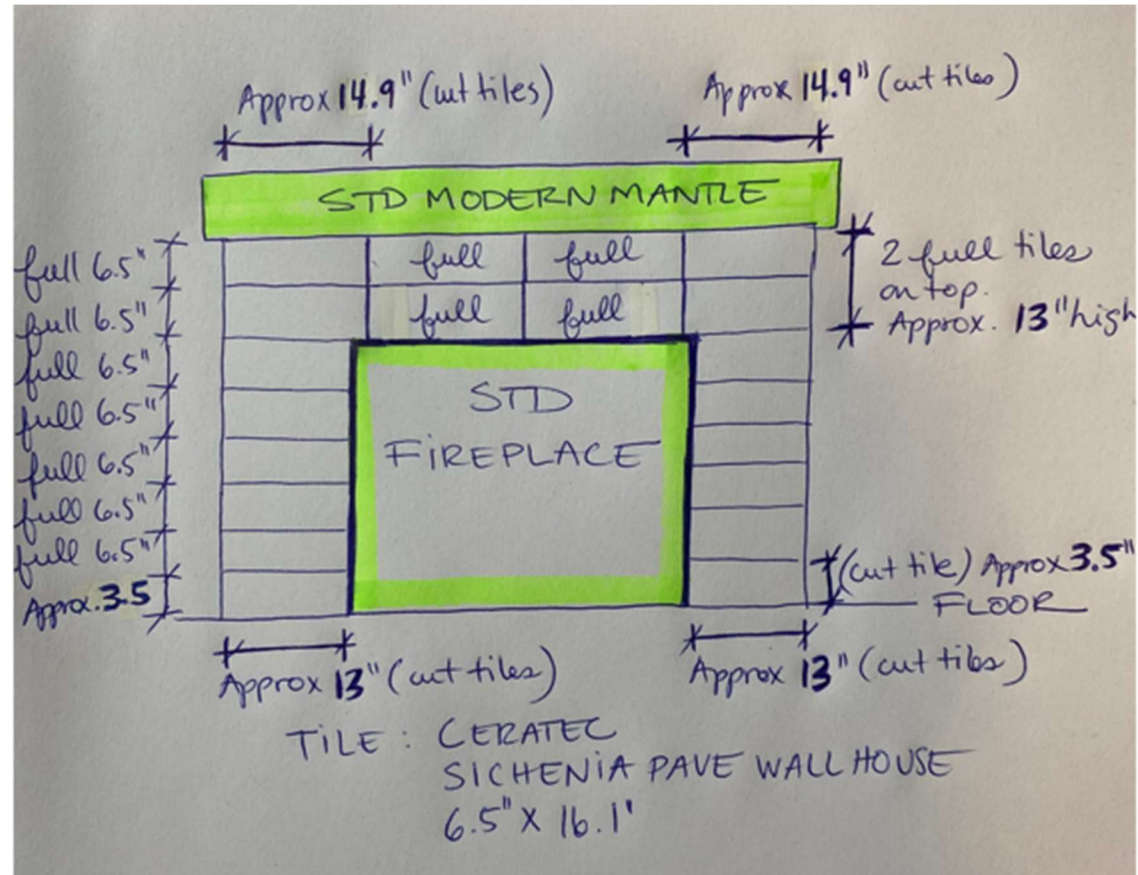 Approx 14.9" (cut tiles)
Approx 14.9" (cut tiles)
STD MODERN MANTLE
full 6.5"
full 6.5"
full 6.5"
full 6.5"
full 6.5"
full 6.5"
full 6.5"
Approx. 3.5
full full
full full
2 full tiles
on top.
Approx. 13" high
STD
FIREPLACE
(cut tile) Approx 3.5"
FLOOR
Approx 13" (cut tiles)
Approx 13" (cut tiles)
TILE : CERATEC
SICHENIA PAVE WALL HOUSE
6.5" X 16.1'